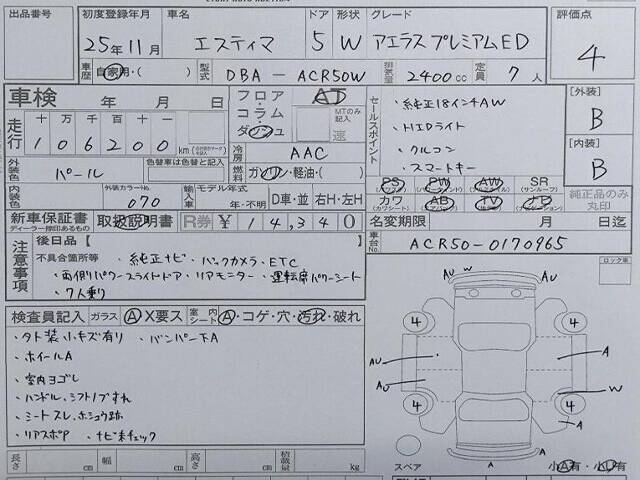 出品番号 初度登録年月 車名 ドア 形状 グレード 評価点
25年11月 エスティマ 5 W アエラスプレミアムED 4
車歴 自家用・( ) 型式 DBA-ACR50W 排気量 2400cc 定員 7人
車検 年 月 日 フロア AT コラム ダッシュ MTのみ記入 速
走行 十万千百十一 106200 km
セールスポイント
・純正18インチAW
・HIDライト
・クルコン
・スマートキー
[外装] B
[内装] B
冷房 AAC
燃料 ガソリン・軽油・( )
外装色 パール 色替車は色替と記入
内装色 外装カラーNo. 070 輸入車 モデル年式 年・不明 D車・並 右H・左H
PS PW AW SR (サンルーフ)
カワ (カワシート) AB TV ナビ 純正品のみ丸印
新車保証書 ディーラー捺印あるもの 取扱説明書 R券 ¥14,340 名変期限 月 日迄
車台No. ACR50-0170965
注意事項 後日品[ ]
不具合箇所等 ・純正ナビ・バックカメラ・ETC
・両側パワースライドドア・リアモニター・運転席パワーシート
・7人乗り
ロック車
検査員記入 ガラス A X要ス 室内シート A・コゲ・穴・汚れ・破れ
・外装小キズ有り ・バンパー下A
・ホイールA
・室内ヨゴレ
・ハンドル、シフトノブすれ
・シートスレ、ホショウ跡
・リアスポP ・ナビ未チェック
AU W AU
4 4
AU A
AU W
4 4
A
A A
長さ cm 幅 cm 高さ cm 積載量 kg
スペア 小A有・小U有